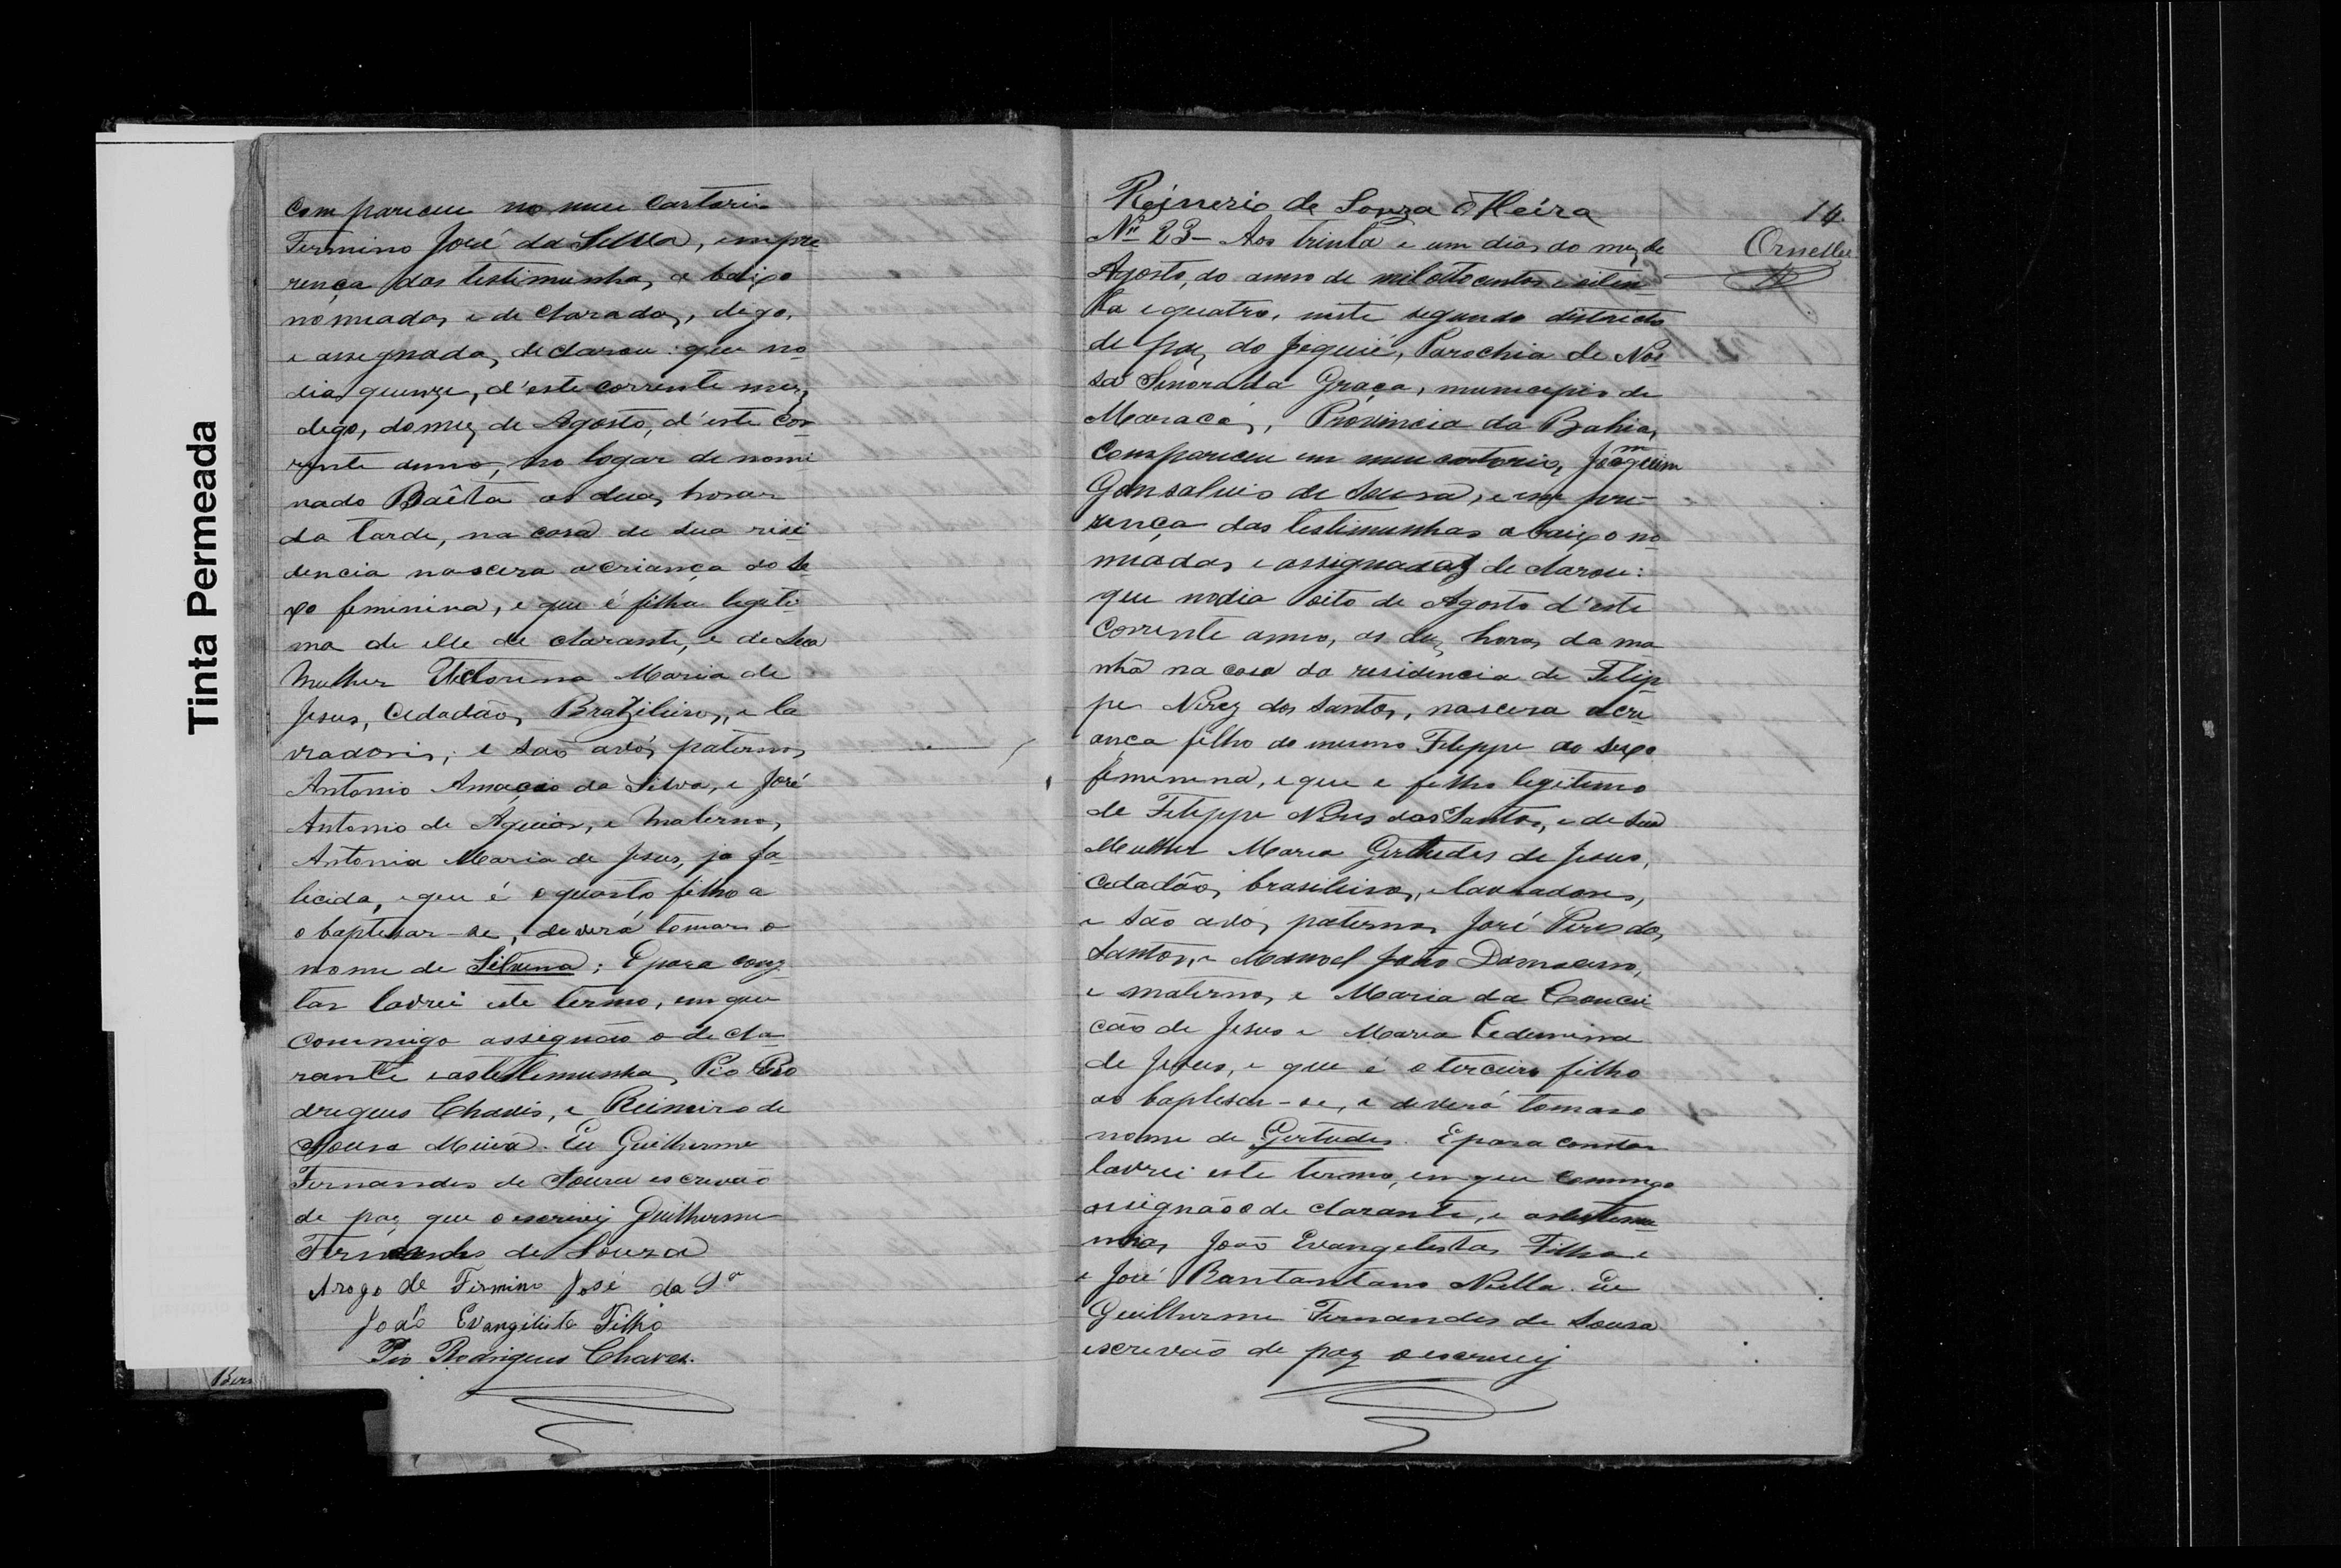 Tinta Permeada
compareceu no meu cartorio
Fermino José da Sillva, em pre
zença das testimunhas abaixo
nomiadas e declaradas, digo,
e assegnadas, declarou: que no
dia quinze, d'este corrente mez,
digo, do mez de Agosto, d'este cor
rente anno, no logar denomi
nado Baêta as duas horas
da tarde, na casa de sua resi
dencia nascera a criança do se
xo feminina, e que é filha legiti
ma de elle declarante, e de sua
mulher Victorina Maria de
Jesus, Cidadãos Brazileiros, e la
vradoris; e são avós paternos
Antonio Amacio da Silva, e José
Antonio de Aguiar, e maternos
Antonia Maria de Jesus, ja fa
licida, e que é o quarto filho a
o baptesar-se, deverá tomar o
nome de Silvina; E para cons
tar lavrei este termo, em que
commigo assignão o decla
rante e as testemunhas Pio Ro
drigues Chaves, e Reineiro de
Sousa Meira. Eu Guilherme
Fernandes de Souza escrivão
de paz que o escrivij Guilherme
Fernandes de Souza
Arogo de Firmino José da Sa
João Evangilista Filho
Pio Rodrigues Chaves.
Bern
Rejnerio de Souza Meira
14
Ornellas
No 23 - Aos trinta e um dias do mez de
Agosto, do anno de mil oito centos e oiten
ta e quatro, neste segundo districto
de paz do Jiquié, Parochia de Nos
sa Senora da Graça, municipio de
Maracás, Provincia da Bahia,
Compareceu em meu cartorio, Joaquim
Gonsalvis de Sousa, e em pre-
zença das testimunhas abaixo no
miadas e assignadas declarou:
que no dia oito de Agosto d'este
corrente anno, as dez horas da ma
nhã na casa da residencia de Filip
pe Nirez dos Santos, nascera a cri
ança filho do mesmo Filippe do sexo
feminina, e que e filho legitimo
de Filippe Niris dos Santos, e de sua
Mulher Maria Gertrudes de Jesus,
cidadãos brasileiros, e lavradores,
e são avós paternos José Piris dos
Santos, e Manoel João Damaceno,
e maternos e Maria da Concei
cão de Jesus e Maria
de Jesus, e que é o terceiro filho
ao baptesar-se, e deverá tomar o
nome de Gertudes. E para constar
lavrei este termo, em que comigo
assignão o declarante, e as testemu
nhas João Evangelista Filho e
e José Nella. Eu
Guilherme Fernandes de Sousa
escrivão de paz o escrivij